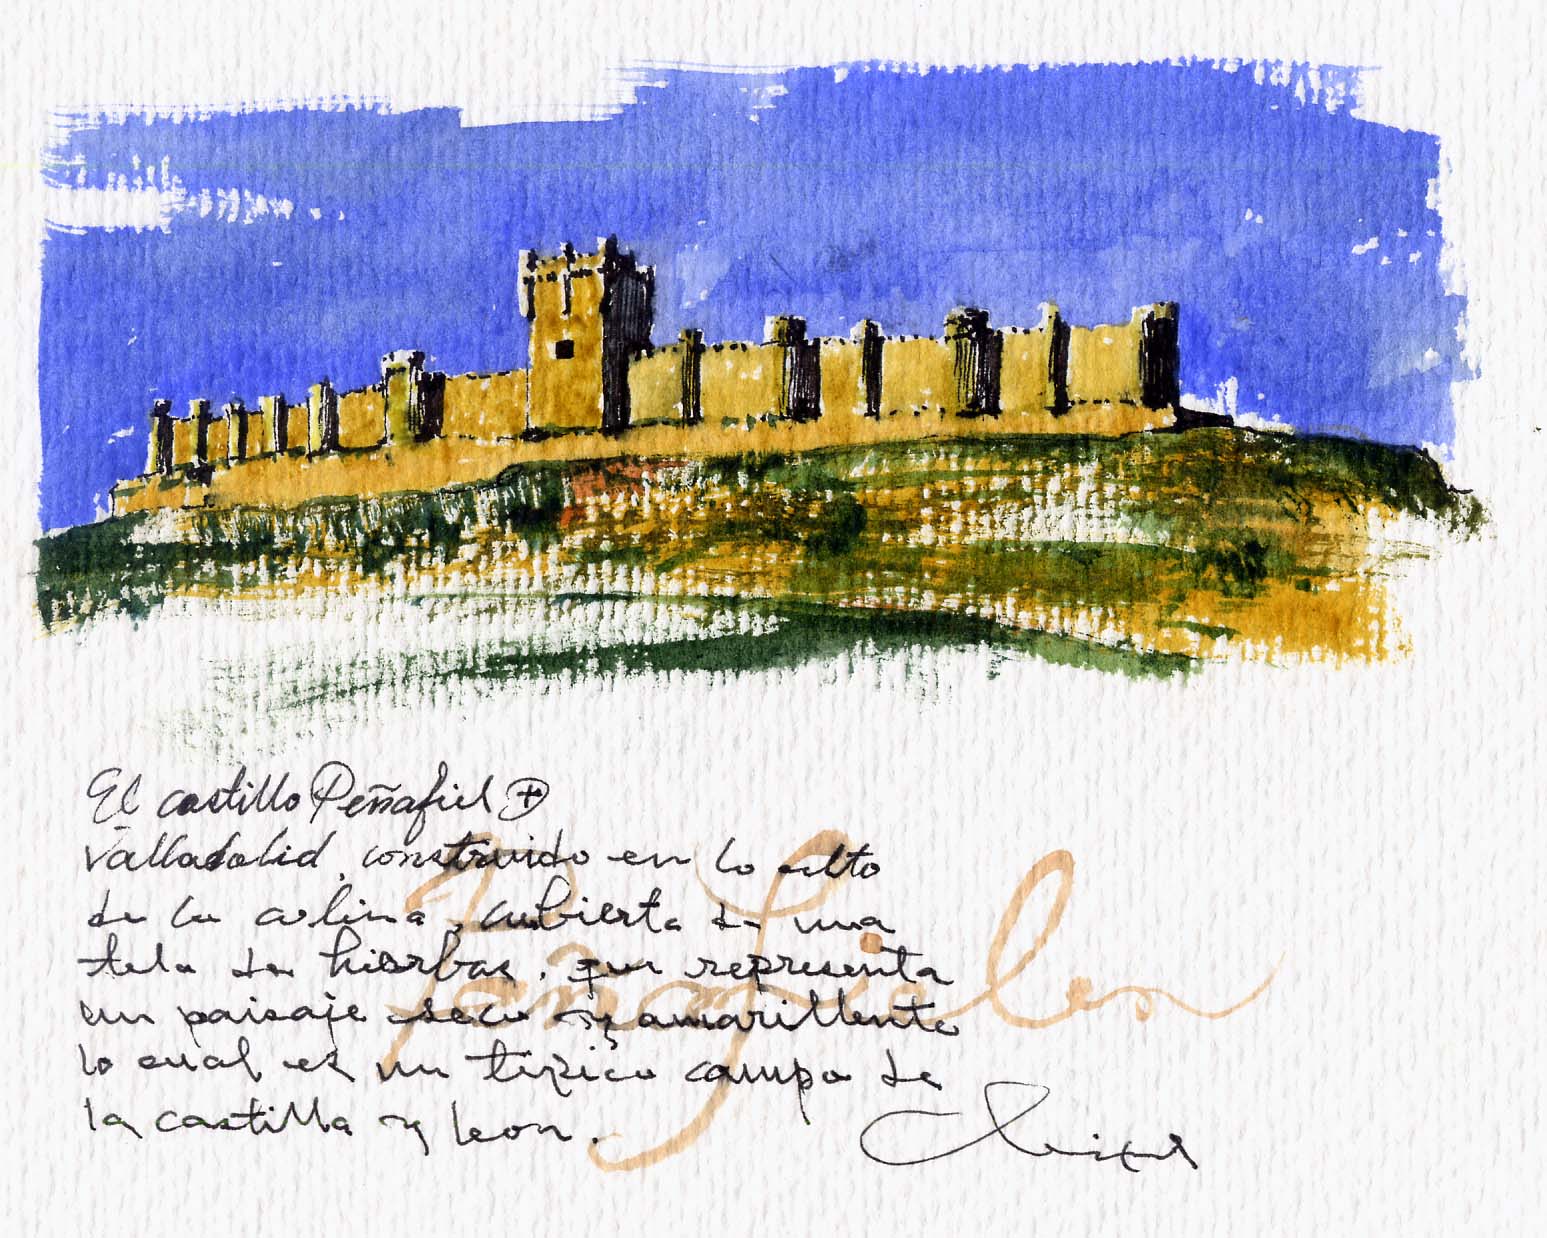 El castillo Peñafiel
Valladolid, construido en lo alto
de la colina, cubierta de una
tela de hierbas, que representa
un paisaje seco y amarillento
lo cual es un tipico campo de
la castilla y leon.
Peñafiel